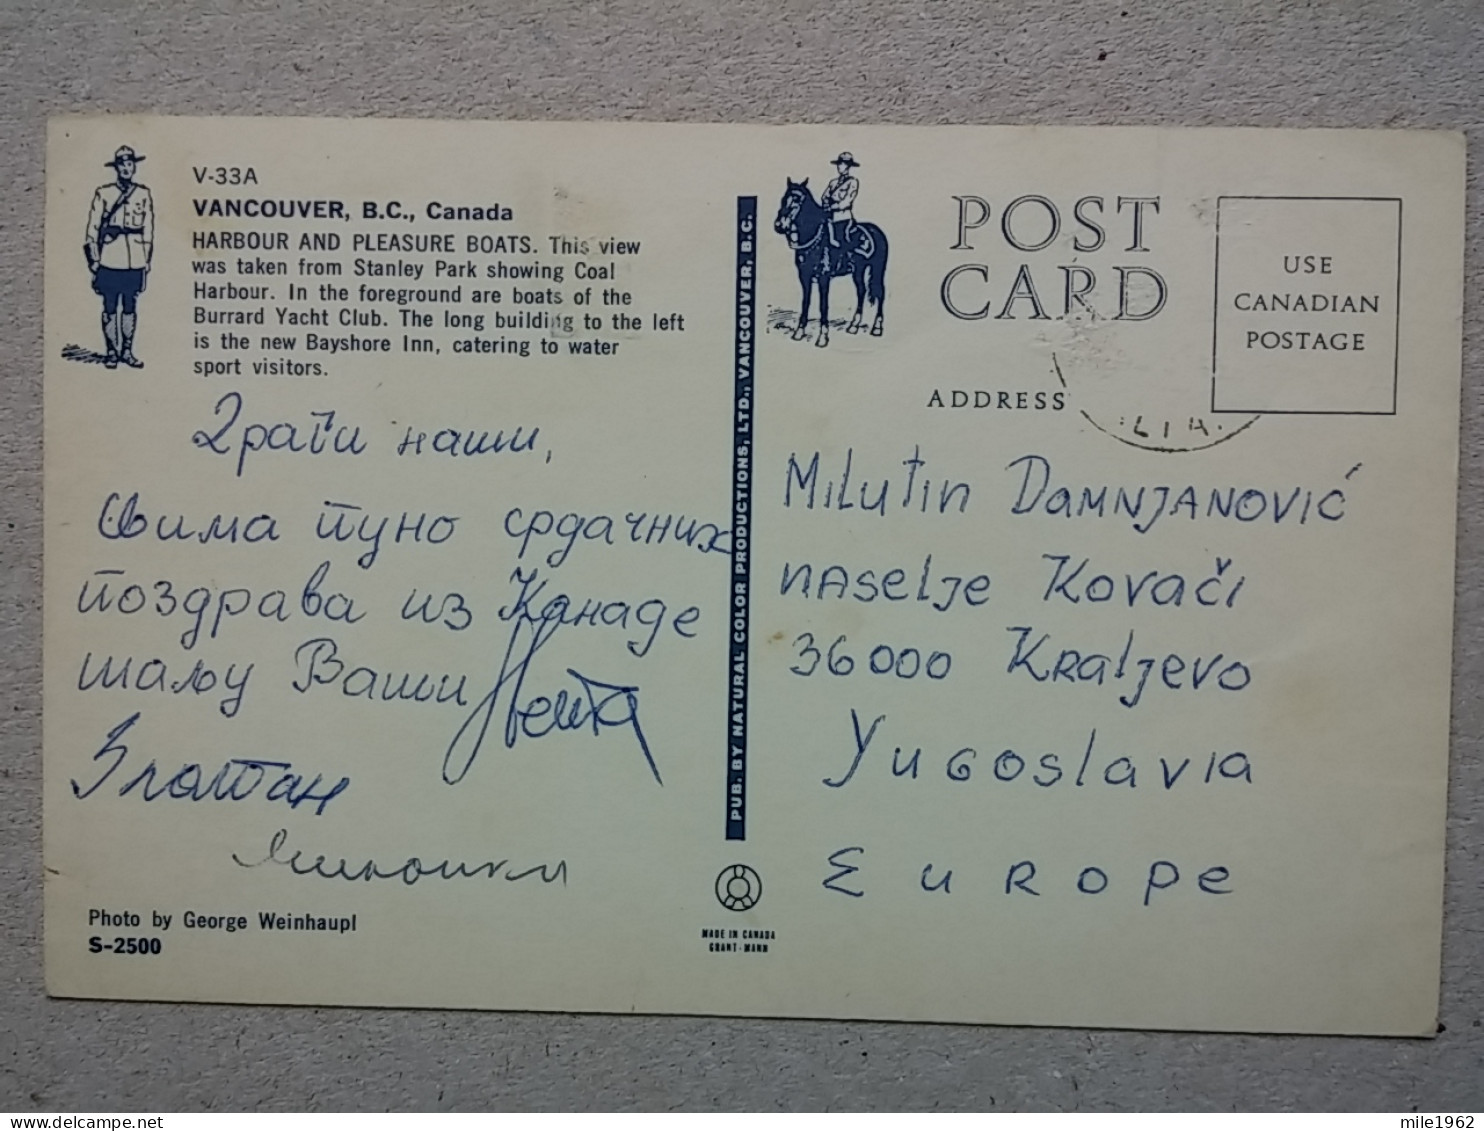 V-33A
VANCOUVER, B.C., Canada
HARBOUR AND PLEASURE BOATS. This view
was taken from Stanley Park showing Coal
Harbour. In the foreground are boats of the
Burrard Yacht Club. The long building to the left
is the new Bayshore Inn, catering to water
sport visitors.
Драги наши,
Свима пуно срдачних
поздрава из Канаде
шаљу Ваши
Златан
Photo by George Weinhaupl
S-2500
PUB. BY NATURAL COLOR PRODUCTIONS, LTD., VANCOUVER, B.C.
MADE IN CANADA
GRANT-MANN
POST
CARD
USE
CANADIAN
POSTAGE
ADDRESS
Milutin Damnjanović
naselje Kovači
36000 Kraljevo
Yugoslavia
Europe
mile1962